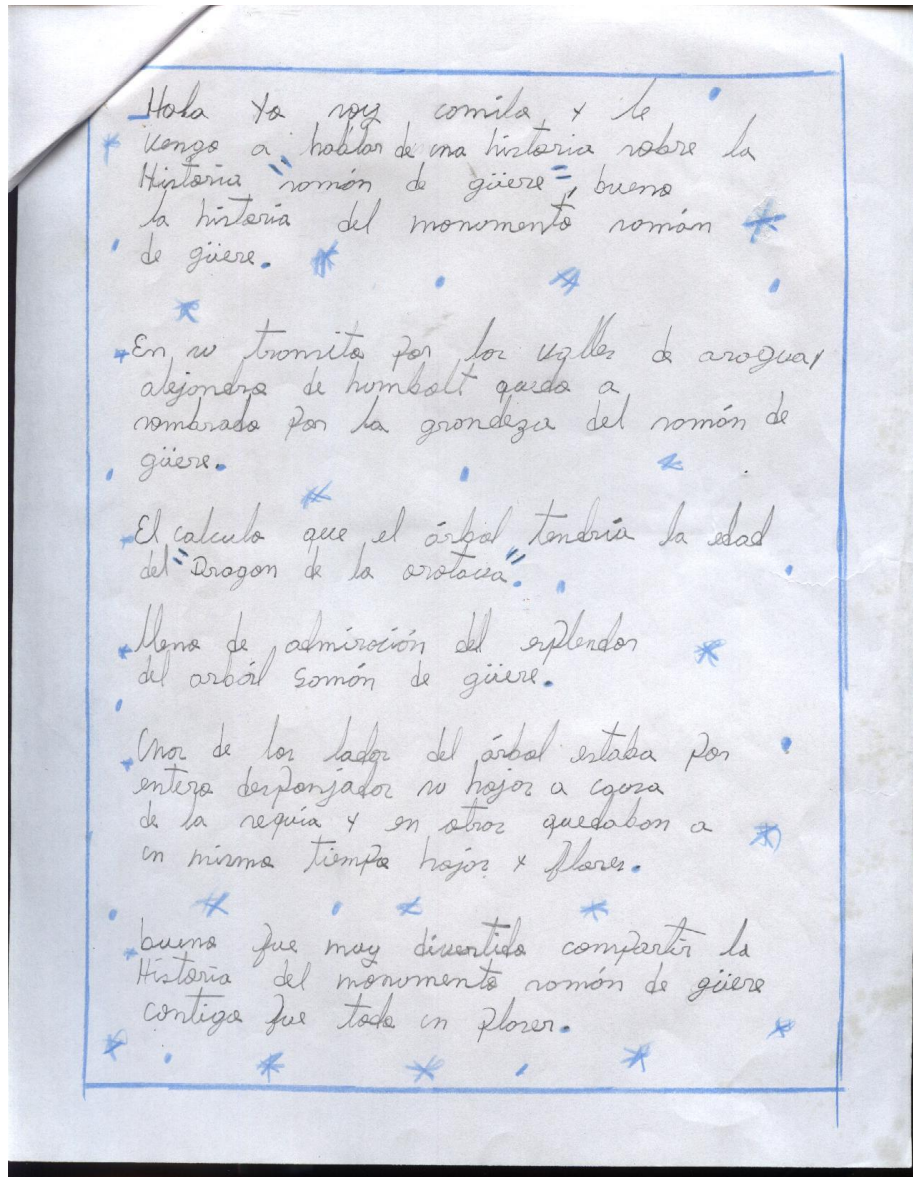 Hola Yo soy camila, y le
vengo a hablar de una historia sobre la
Historia "samán de güere", bueno
la historia del monumento samán
de güere.
En su transito por los valles de aragua,
alejandro de humbolt quedo a
sombrado por la grandeza del samán de
güere.
El calculo que el árbol tendría la edad
del "Dragon de la orotava".
lleno de admiración del esplendor
del arból Samán de güere.
Unos de los lados del árbol estaba por
entero desponjados su hojas a causa
de la sequía y en otros quedaban a
un mismo tiempo hojas y flores.
bueno fue muy divertido compartir la
Historia del monumento samán de güere
contigo fue todo un placer.